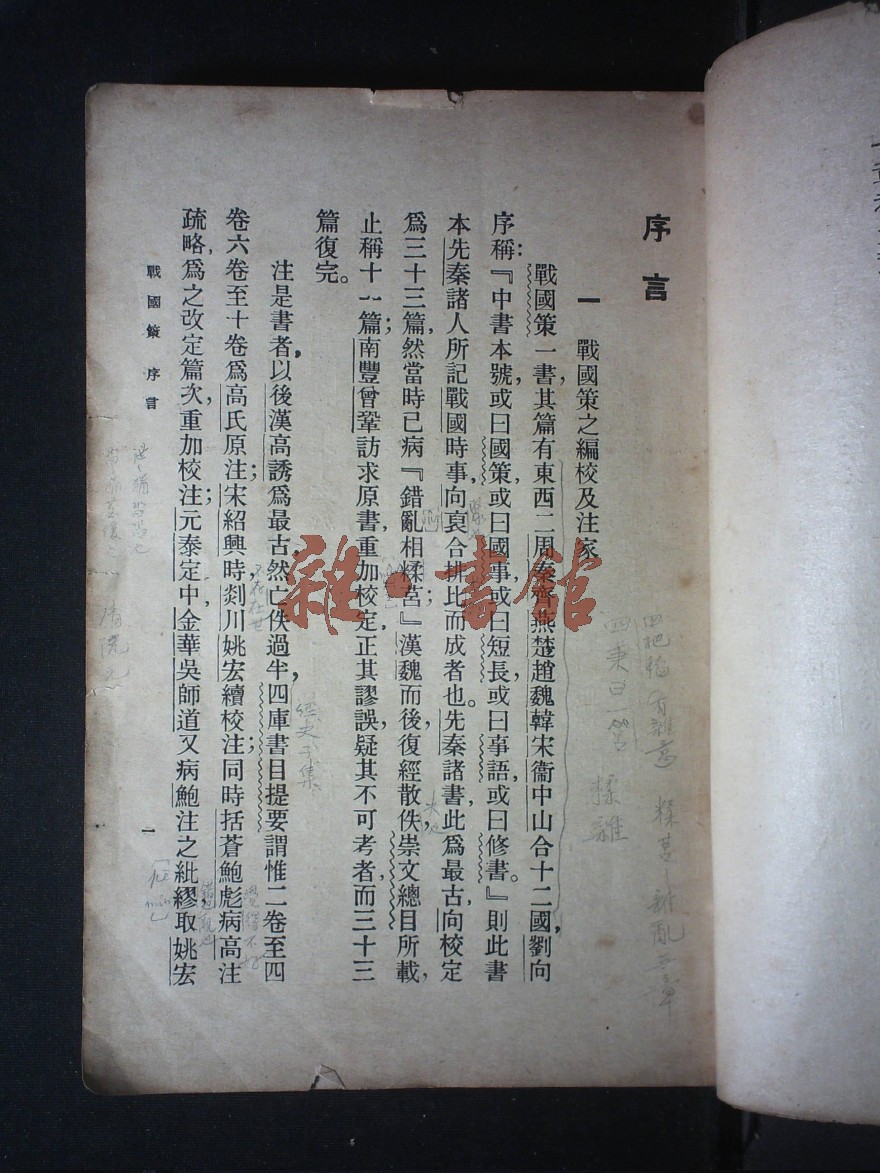 序言
一　戰國策之編校及注家
戰國策一書，其篇有東西二周秦齊燕楚趙魏韓宋衞中山合十二國，劉向
序稱：『中書本號，或曰國策，或曰國事，或曰短長，或曰事語，或曰修書。』則此書
本先秦諸人所記戰國時事，向裒合排比而成者也。先秦諸書，此爲最古，向校定
爲三十三篇，然當時已病『錯亂相糅莒；』漢魏而後，復經散佚，崇文總目所載，
止稱十一篇；南豐曾鞏訪求原書，重加校定，正其謬誤，疑其不可考者，而三十三
篇復完。
注是書者，以後漢高誘爲最古，然亡佚過半，四庫書目提要謂惟二卷至四
卷六卷至十卷爲高氏原注；宋紹興時，剡川姚宏續校注；同時括蒼鮑彪病高注
疏略，爲之改定篇次，重加校注；元泰定中，金華吳師道又病鮑注之紕繆，取姚宏
戰國策　序言
一
雜·書館
經史子集